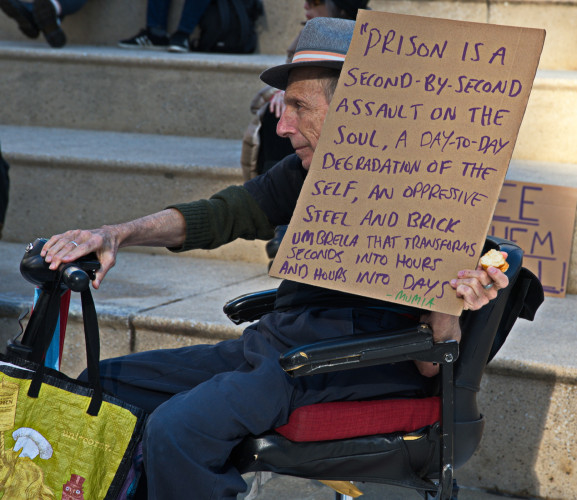 "PRISON IS A
SECOND-BY-SECOND
ASSAULT ON THE
SOUL, A DAY-TO-DAY
DEGRADATION OF THE
SELF, AN OPPRESSIVE
STEEL AND BRICK
UMBRELLA THAT TRANSFORMS
SECONDS INTO HOURS
AND HOURS INTO DAYS
-MUMIA
EE
HEM